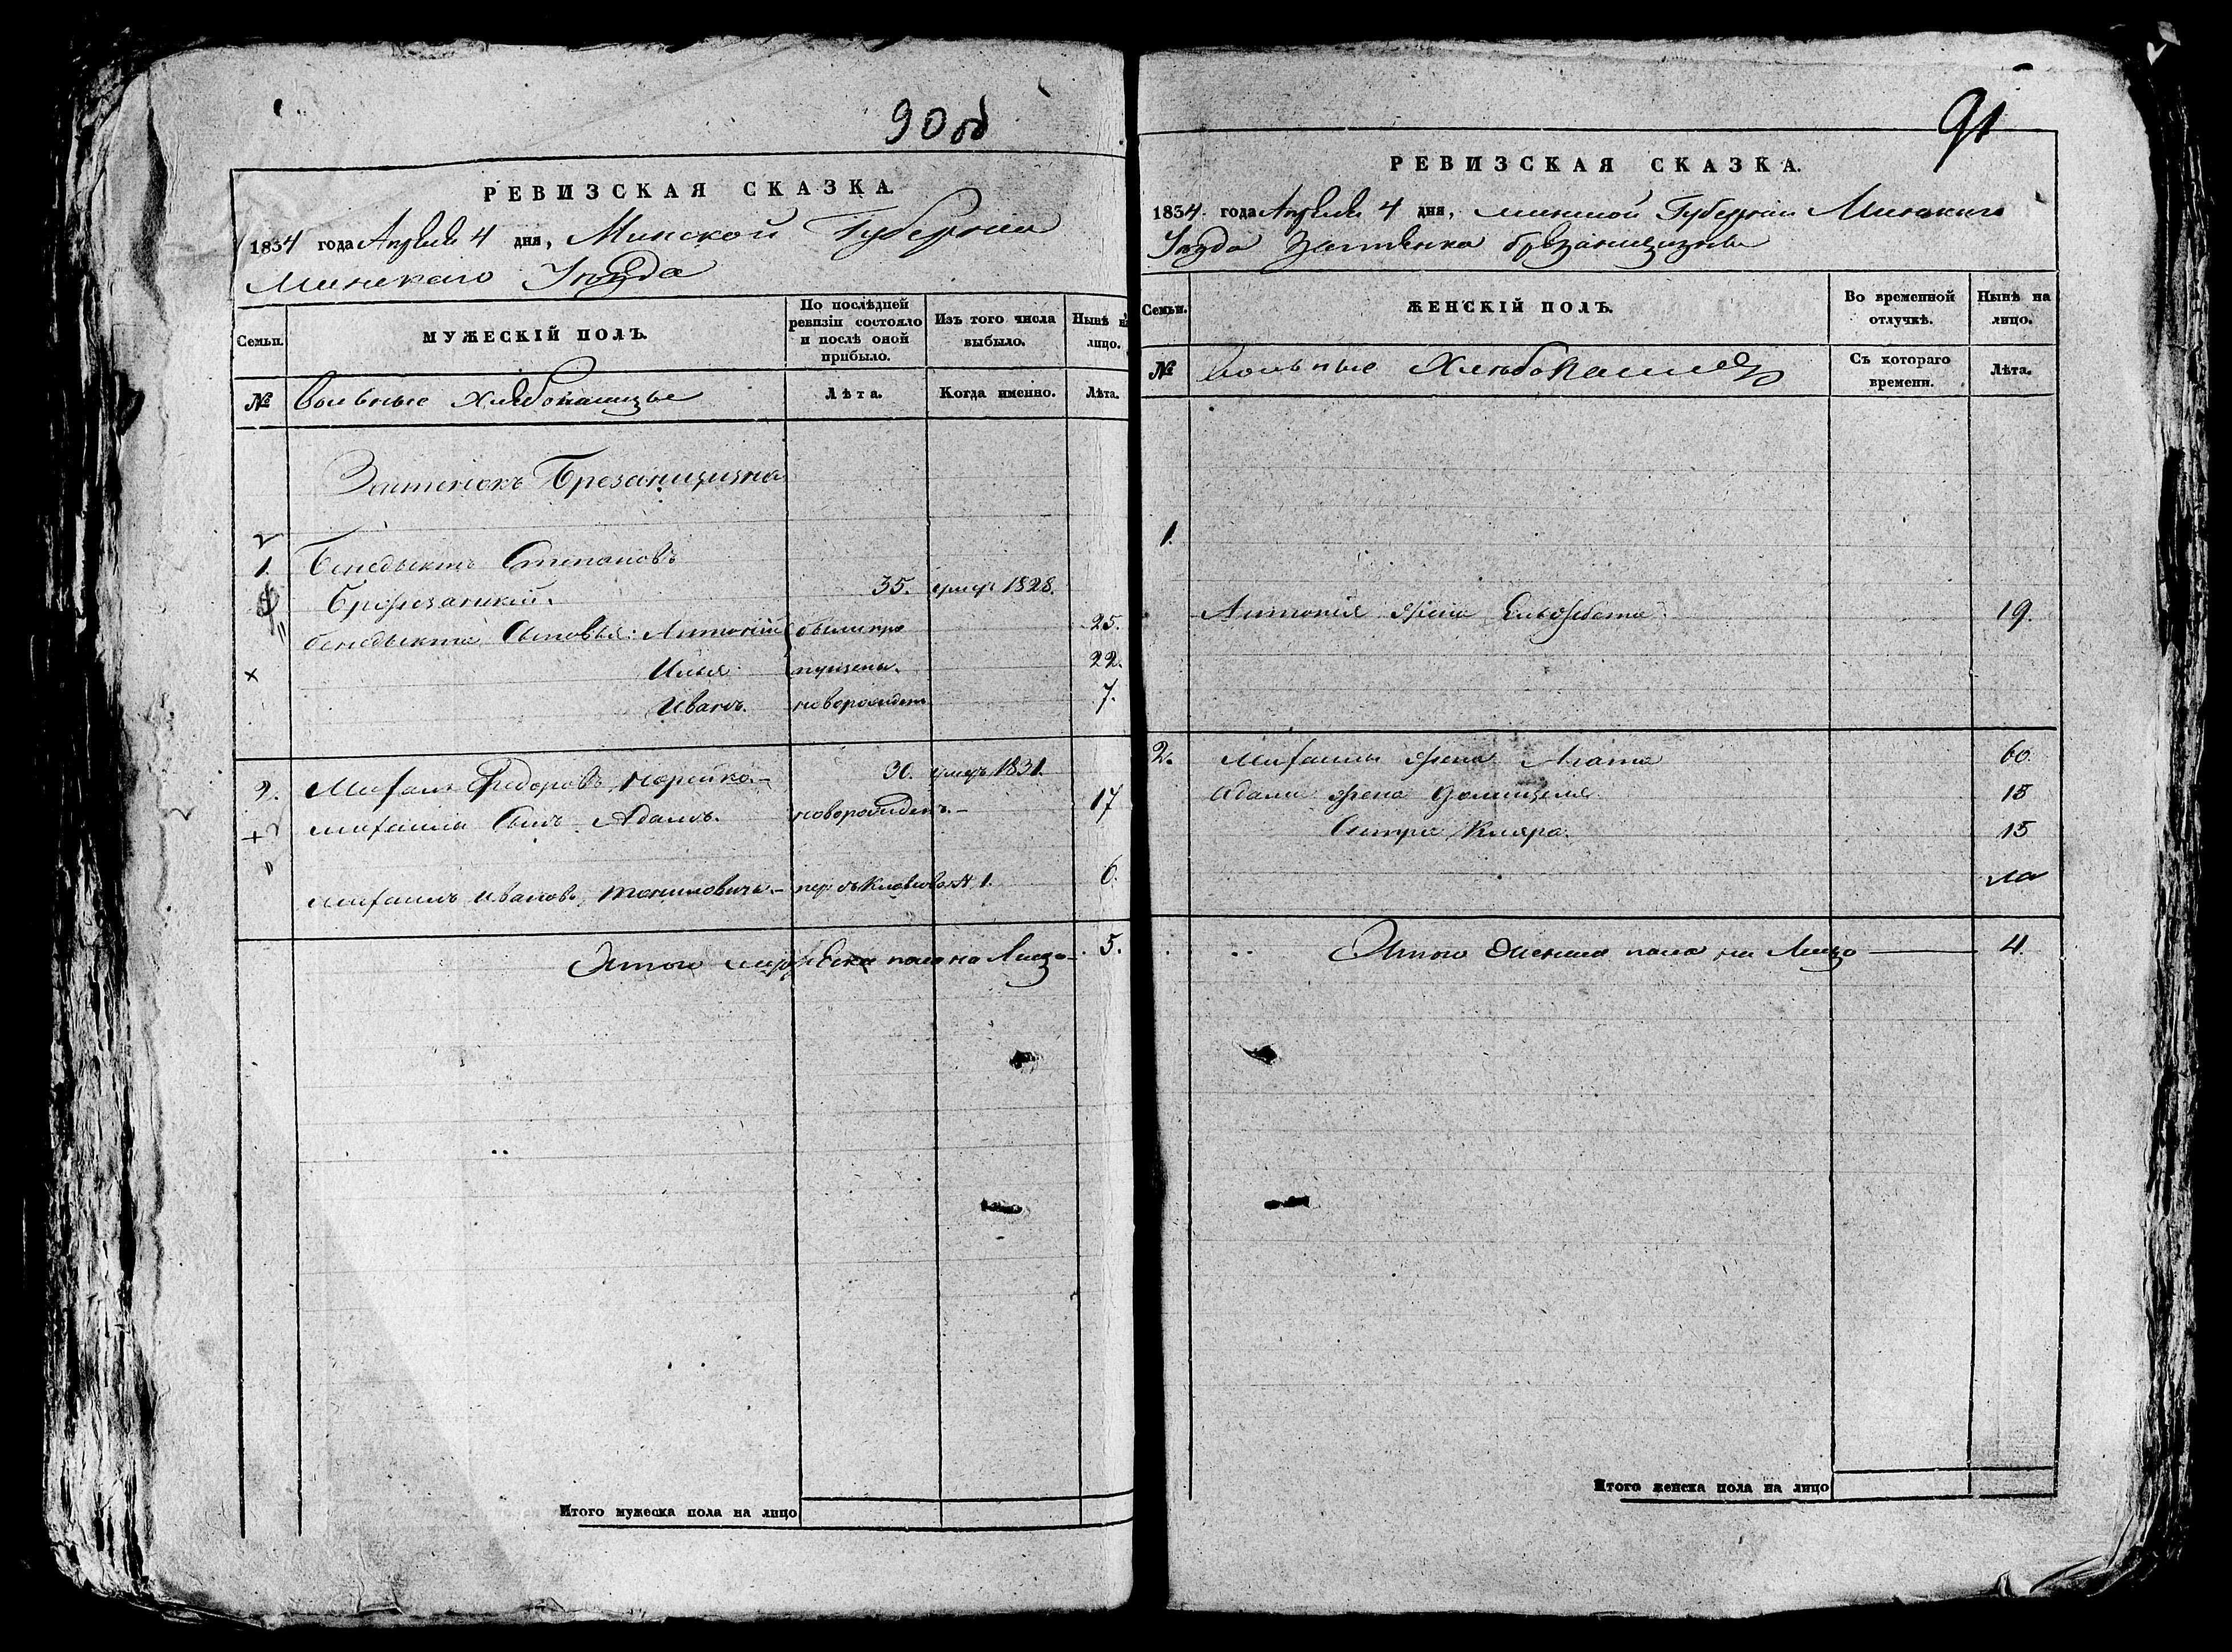 90 об
РЕВИЗСКАЯ СКАЗКА.
1834 года Апреля 4 дня, Минской Губернии
Минскаго Уезда
Семьи.
МУЖЕСКІЙ ПОЛЪ.
По послѣдней ревизіи состояло и послѣ оной прибыло.
Изъ того числа выбыло.
Нынѣ на лицо.
№
Вольные Хлебопашцы
Лѣта.
Когда именно.
Лѣта.
Застенокъ Брезанщизна
1. Бенедыктъ Степановъ
35. умеръ 1828.
Бенедыкта Сыновья: Антоній были про 25.
Илья пущены. 22.
Иванъ. новорожденъ 7.
2. Михалъ Федоровъ 30. умеръ 1831.
Михаила Сынъ Адамъ. новорожденъ. 17
Михаилъ Ивановъ 6.
Итого мужеска пола на Лицо 5.
Итого мужеска пола на лицо
91
РЕВИЗСКАЯ СКАЗКА.
1834 года Апреля 4 дня, Минской Губерніи Минскаго
Уезда Застенка Брезанщизны
Семьи.
ЖЕНСКІЙ ПОЛЪ.
Во временной отлучкѣ.
Нынѣ на лицо.
№
Вольные Хлебопашцы
Съ котораго времени.
Лѣта.
1.
Антонія жена Ельжбета 19.
2. Михаила жена Агата 60.
Адама жена Доминцеля 18
Сестра Кляра. 15
Итого Женска пола на Лицо 4.
Итого женска пола на лицо